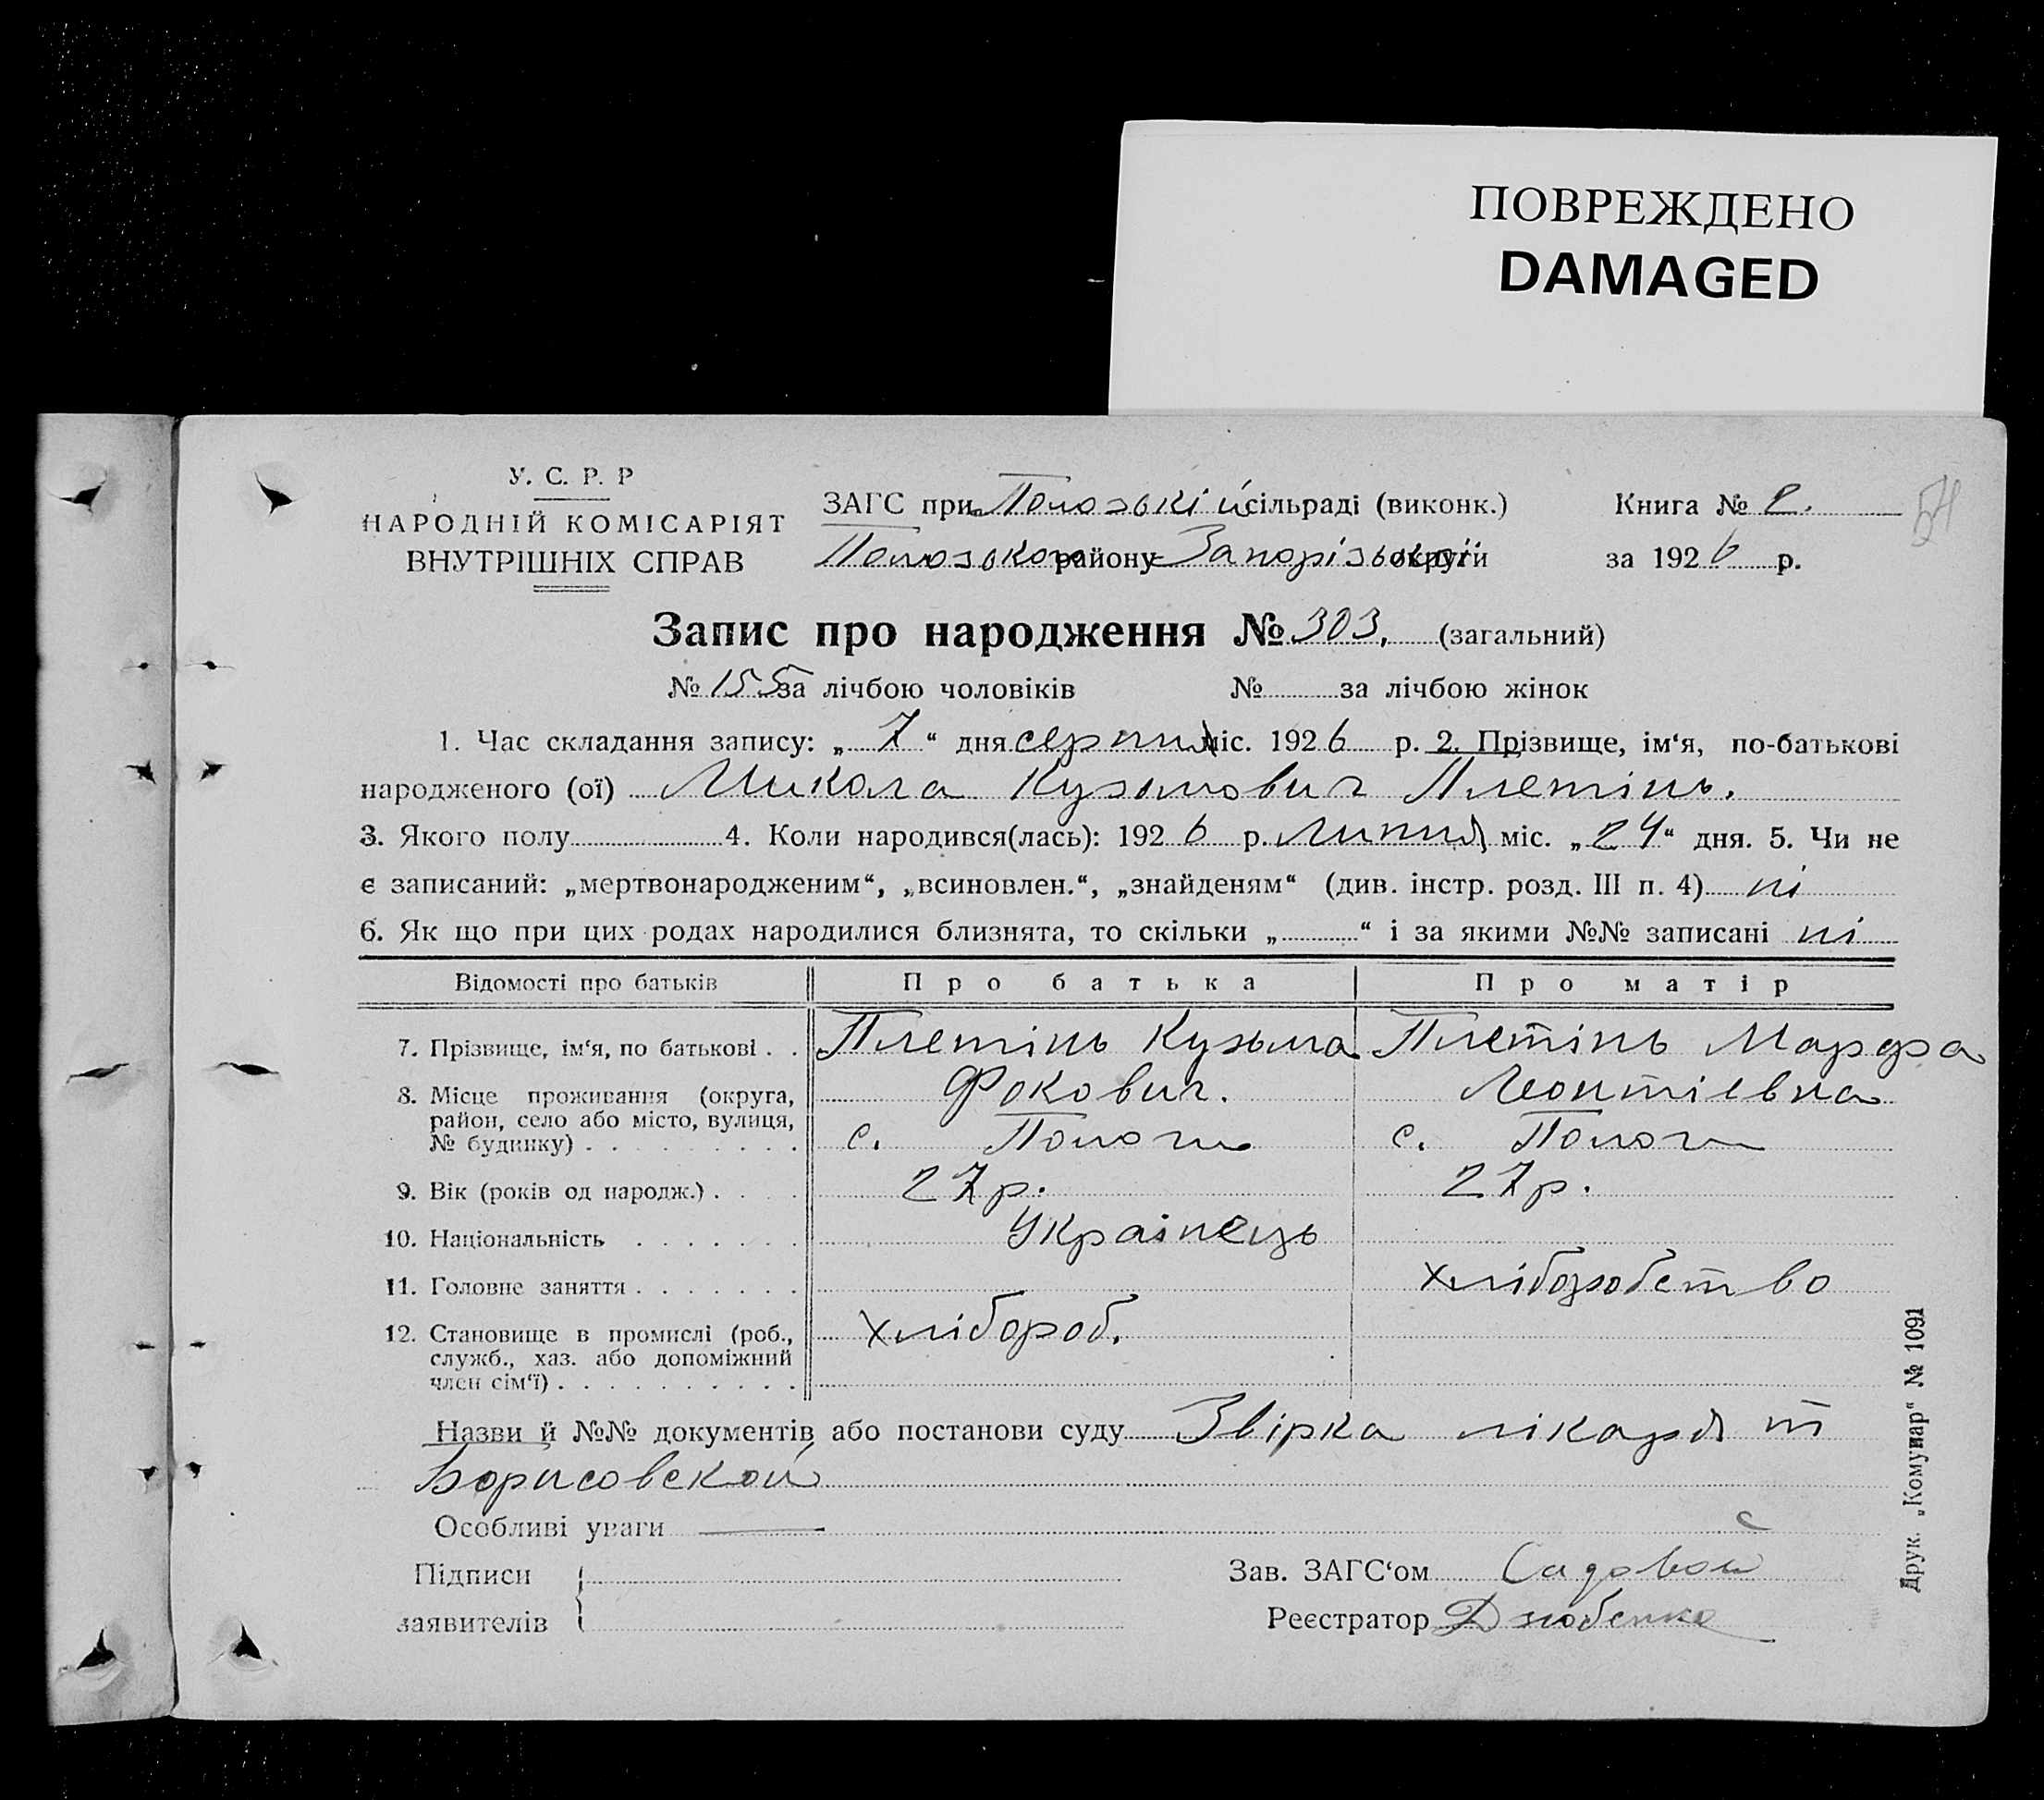 ПОВРЕЖДЕНО
DAMAGED
У. С. Р. Р
НАРОДНІЙ КОМІСАРІЯТ
ВНУТРІШНІХ СПРАВ
ЗАГС при Пологські й сільраді (виконк.)
Пологського району Запорізської округи
Книга № 2.
за 1926 р.
54
Запис про народження № 303. (загальний)
№ 155 за лічбою чоловіків № за лічбою жінок
1. Час складання запису: „ 7 “ дня серпня міс. 1926 р. 2. Прізвище, ім‘я, по-батькові
народженого (ої) Микола Кузьмович Плетінь.
3. Якого полу 4. Коли народився(лась): 1926 р. Липня міс. „24“ дня. 5. Чи не
є записаний: „мертвонародженим“, „всиновлен.“, „знайденям“ (див. інстр. розд. III п. 4) ні
6. Як що при цих родах народилися близнята, то скільки „ “ і за якими №№ записані ні
Відомості про батьків Про батька Про матір
7. Прізвище, ім‘я, по батькові . . Плетінь Кузьма Плетінь Марфа
Фокович. Леонтіевна
8. Місце проживання (округа,
район, село або місто, вулиця,
№ будинку) . . . . . . . . . с. Пологи с. Пологи
9. Вік (років од народж.) . . . . 27 р. 27 р.
10. Національність . . . . . . . Українець
11. Головне заняття . . . . . . . хліборобство
12. Становище в промислі (роб.,
служб., хаз. або допоміжний
член сім‘ї) . . . . . . . . . . хлібороб.
Назви й №№ документів або постанови суду Звірка лікаря т
Борисовской
Особливі уваги —
Підписи
заявителів
Зав. ЗАГС‘ом Садовой
Реєстратор Дзюбенко
Друк. „Комунар“ № 1091